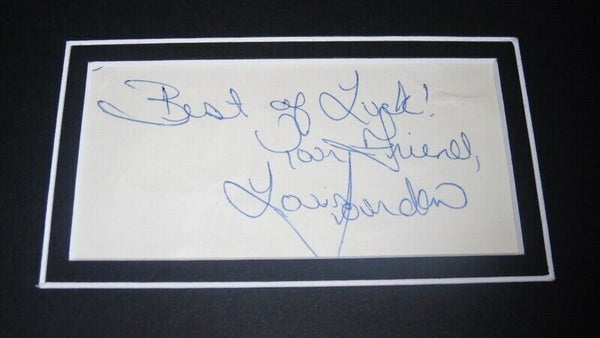 Best of Luck!
Your Friend,
Louis Jourdan